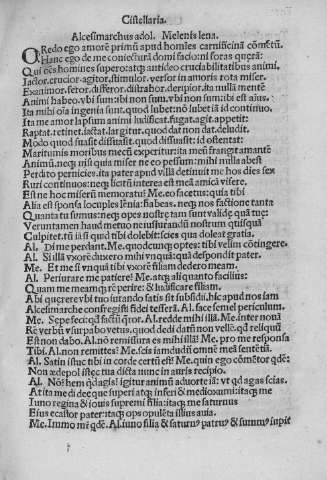 Cistellaria.
Alcesimarchus adol. Melenis lena.
CRedo ego amorē primū apud homīes carnificinā cōmētū.
Hanc ego de me coniecturā domi facio: ni foras quęrā:
Qui oēs homines supero: atqȝ antideo cruciabilitatibus animi.
Iactor. crucior. agitor. stimulor. versor in amoris rota miser.
Exanimor. feror. differor. distrahor. deripior. ita nullā mentē
Animi habeo. vbi sum: ibi non sum. vbi non sum: ibi est aīus.
Ita mihi oīa ingenia sunt. quod lubet: nō lubet iā id continuo.
Ita me amor lapsum animi ludificat. fugat. agit. appetit:
Raptat. retinet. iactat. largitur. quod dat non dat. deludit.
Mōdo quod suasit: dissuasit. quod dissuasit: id ostentat:
Maritumis moribus mecū experitur: ita meū frangit amantē
Animū. neqȝ nisi quia miser ne eo pessum: mihi nulla abest
Perdito pernicies. ita pater apud villā detinuit me hos dies sex
Ruri continuos: neqȝ licitū interea est meā amicā visere.
Est ne hoc miserū memoratu? Me. eo facetus: quia tibi
Alia est sponsa locuples lēnia: si abeas. neqȝ nos factione tanta
Quanta tu sumus: neqȝ opes nostrę tam sunt validę quā tuę:
Veruntamen haud metuo ne iusiurandū nostrum quisquā
Culpitet. tu iā si quid tibi dolebit: scies qua doleat gratia.
Al. Di me perdant. Me. quodcunqȝ optes: tibi velim cōtingere.
Al. Si illā vxorē duxero mihi vnquā: quā despondit pater.
Me. Et me si vnquā tibi vxorē filiam dedero meam.
Al. Periurare me patiere? Me. atqȝ aliquanto facilius:
Quam me meamqȝ rē perire: & ludificare filiam.
Abi quęrere vbi tuo iurando satis sit subsidii. hic apud nos iam
Alcesimarche confregisti fidei tesserā. Al. face semel periculum.
Me. Sepe feci: qd factū queror. Al. redde mihi illā. Me. inter nouā
Rē verbū vsurpabo vetus. quod dedi datū non vellē. qd reliquū
Est non dabo. Al. nō remissura es mihi illā? Me. pro me responsa
Tibi. Al. non remittes? Me. scis iamdudū omnē meā sentētiā.
Al. Satin istuc tibi in corde certū est? Me. quin ego cōmētor qdē:
Non ædepol istęc tua dicta nunc in auris recipio.
Al. Nō? hem qd agis? igitur animū aduorte iā: vt qd agas scias.
At ita me di deęque superi atqȝ inferi & medioxumi: itaqȝ me
Iuno regina & iouis supremi filia: itaqȝ me saturnus
Eius ecastor pater: itaqȝ ops opulēta illius auia.
Me. Immo mr̄ qdē. Al. iuno filia & saturnꝰ patruꝰ & summꝰ iupit